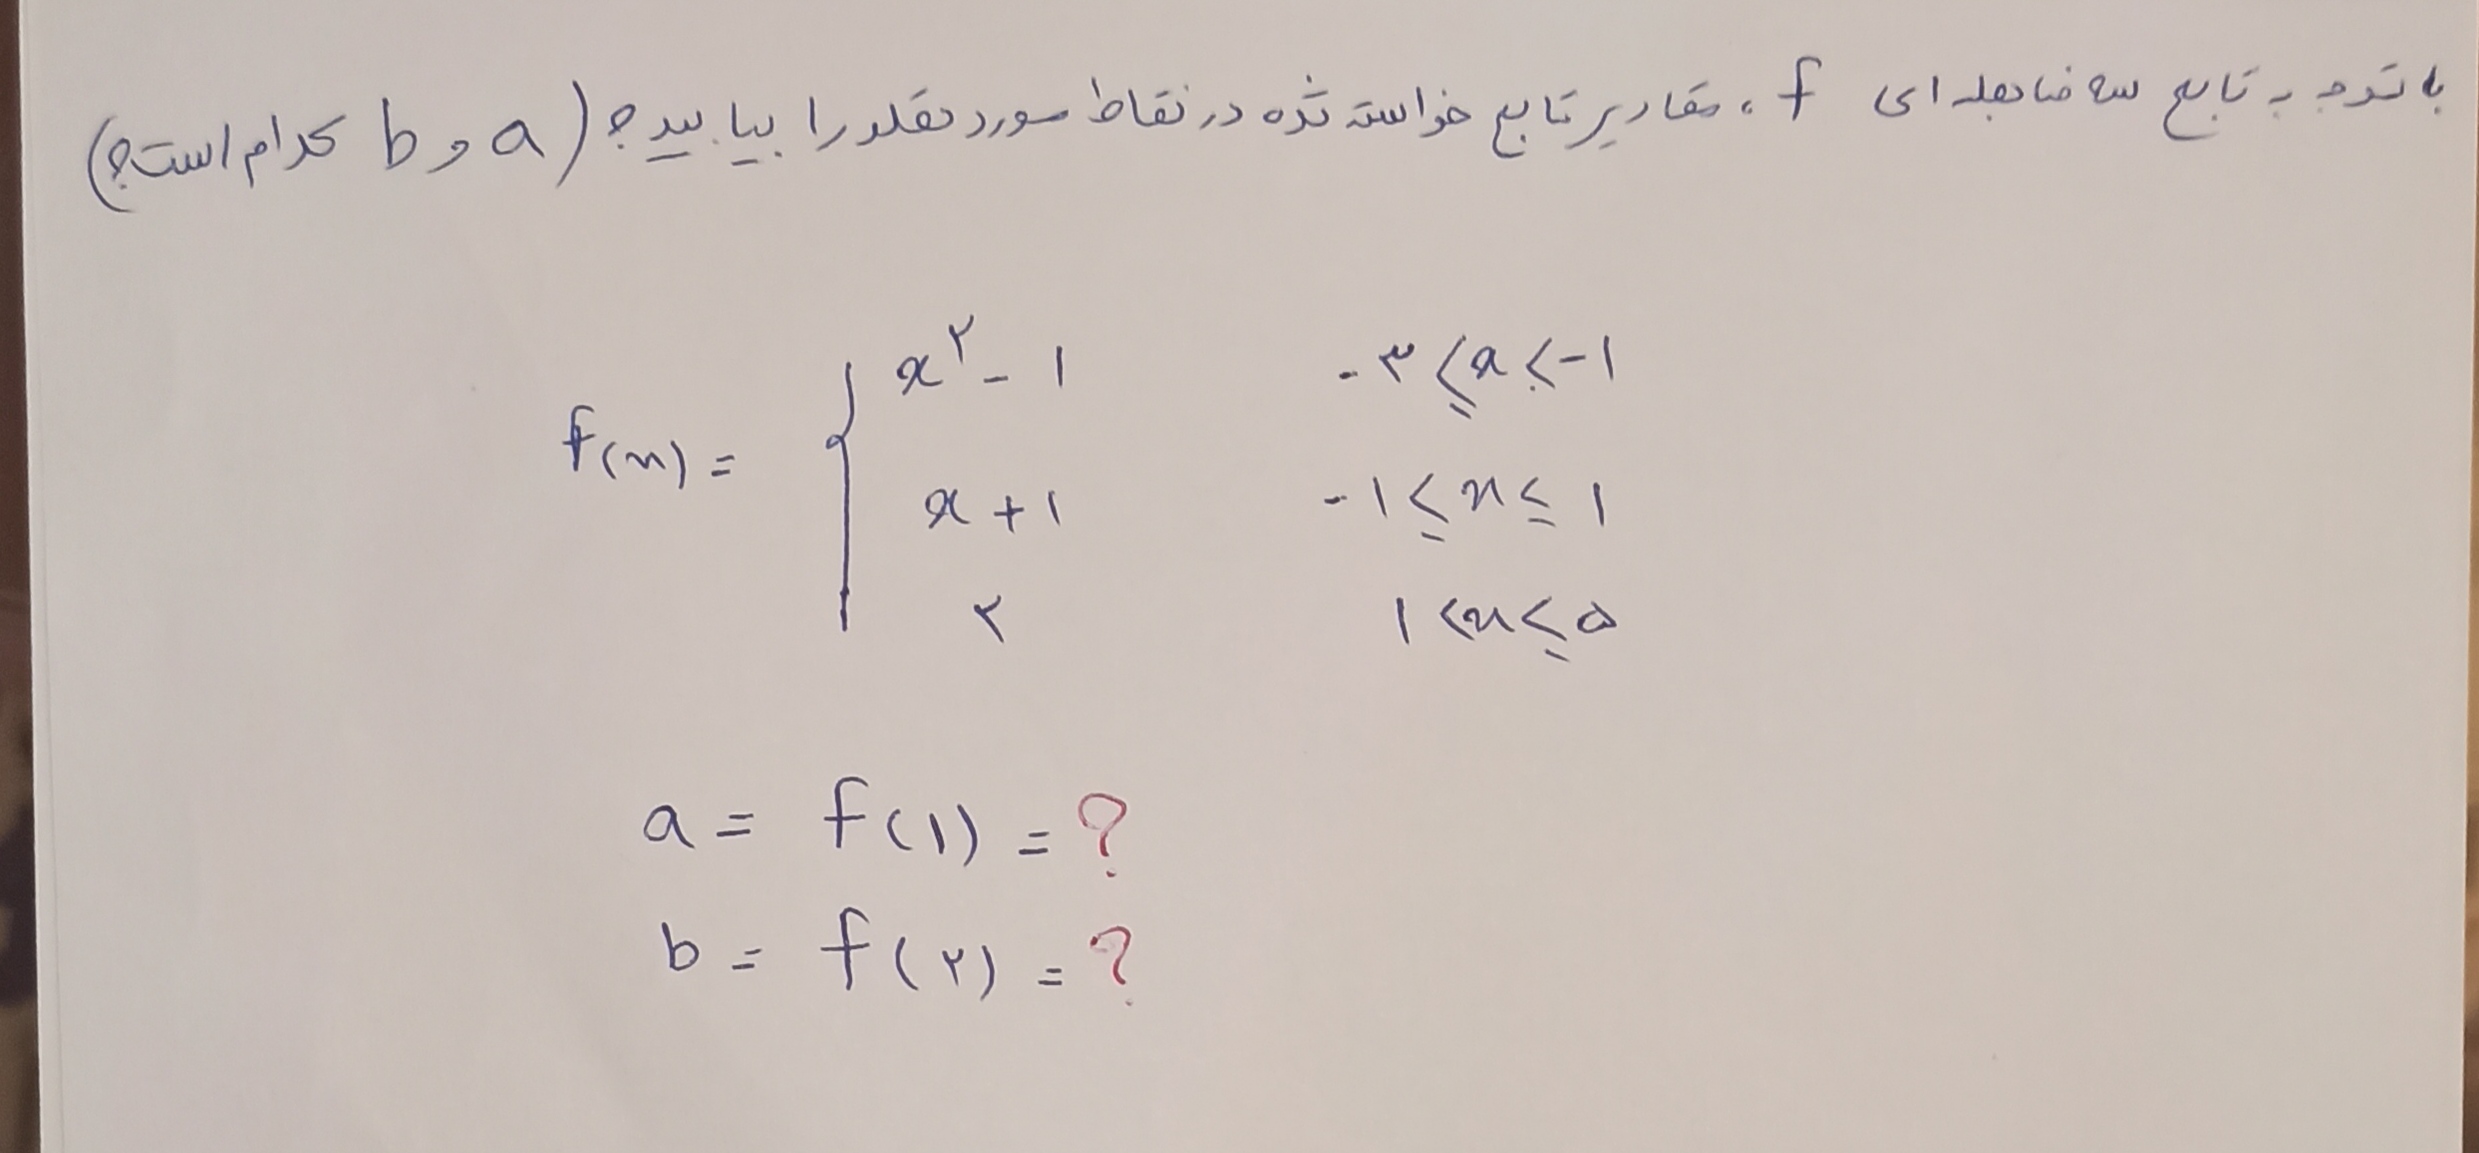 با توجه به تابع سه ضابطه ای f ، مقادیر تابع خواسته شده در نقاط مورد نظر را بیابید؟ (a و b کدام است؟)
f(x) = {
x^۲ - ۱    -۳ ≤ x < -۱
x + ۱    -۱ ≤ x ≤ ۱
۲    ۱ < x ≤ ۵
a = f(۱) = ?
b = f(۲) = ?